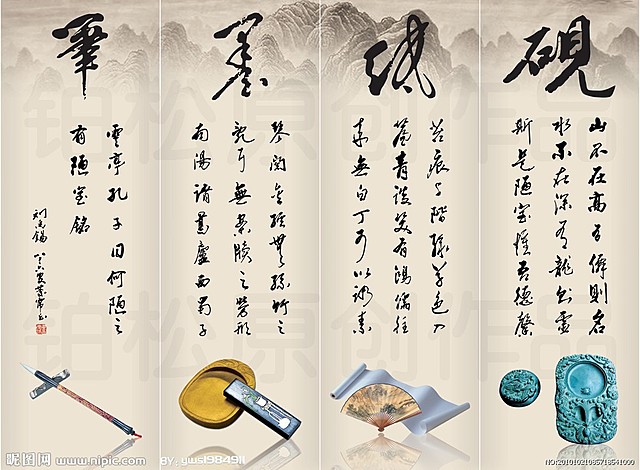 硯
山不在高有僊則名
水不在深有龍則靈
斯是陋室惟吾德馨
紙
苔痕上階緑草色入
簾青談笑有鴻儒往
來無白丁可以調素
墨
琴閲金經無絲竹之
亂耳無案牘之勞形
南陽諸葛廬西蜀子
筆
雲亭孔子曰何陋之
有陋室銘
刘禹锡
铂松原创作品
铂松原创作品
昵图网 www.nipic.com
BY: yws1984911
NO:20101021085718541000